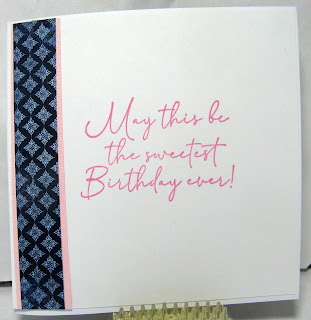 May this be
the sweetest
Birthday ever!